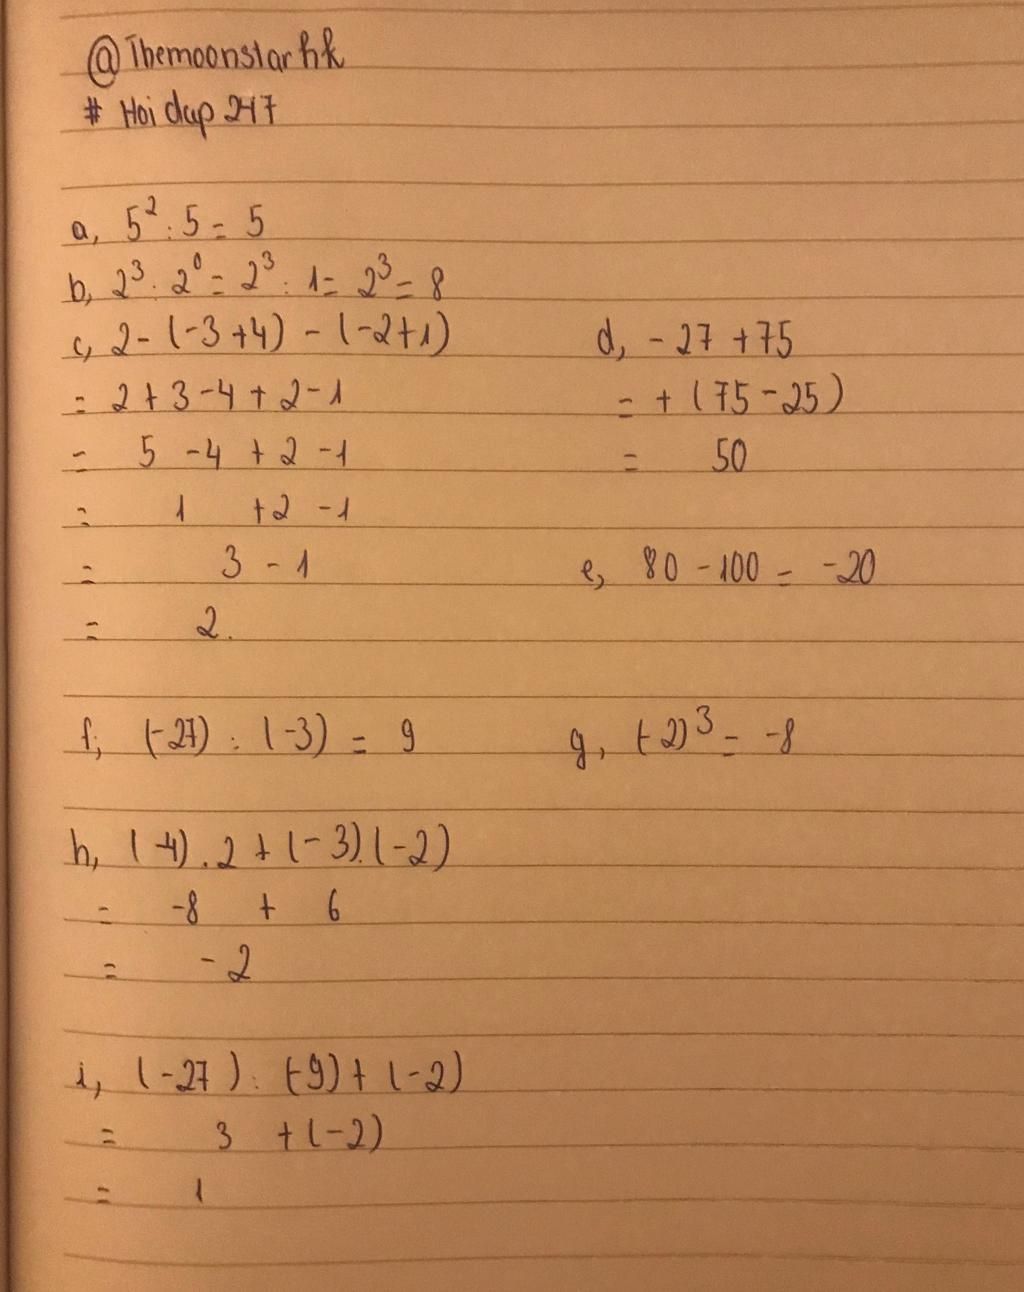 @Themoonstarhk
# Hoi dap 247
a, 5²:5 = 5
b, 2³:2⁰ = 2³:1 = 2³ = 8
c, 2-(-3+4)-(-2+1)
= 2+3-4+2-1
= 5 -4 +2 -1
= 1 +2 -1
= 3 - 1
= 2.
d, -27 +75
= + (75-25)
= 50
e, 80 -100 = -20
f, (-27) : (-3) = 9
g, (-2)³ = -8
h, (-4).2+(-3).(-2)
= -8 + 6
= -2
i, (-27) : (-9)+(-2)
= 3 +(-2)
= 1